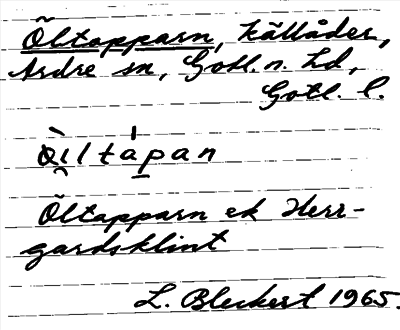 Öltapparn, källåder,
Ardre sn, Gotl. n. hd,
Gotl. l.
ö̀i̯ltápan
Öltapparn ek Herr-
gardsklint
L. Bleckert 1965.